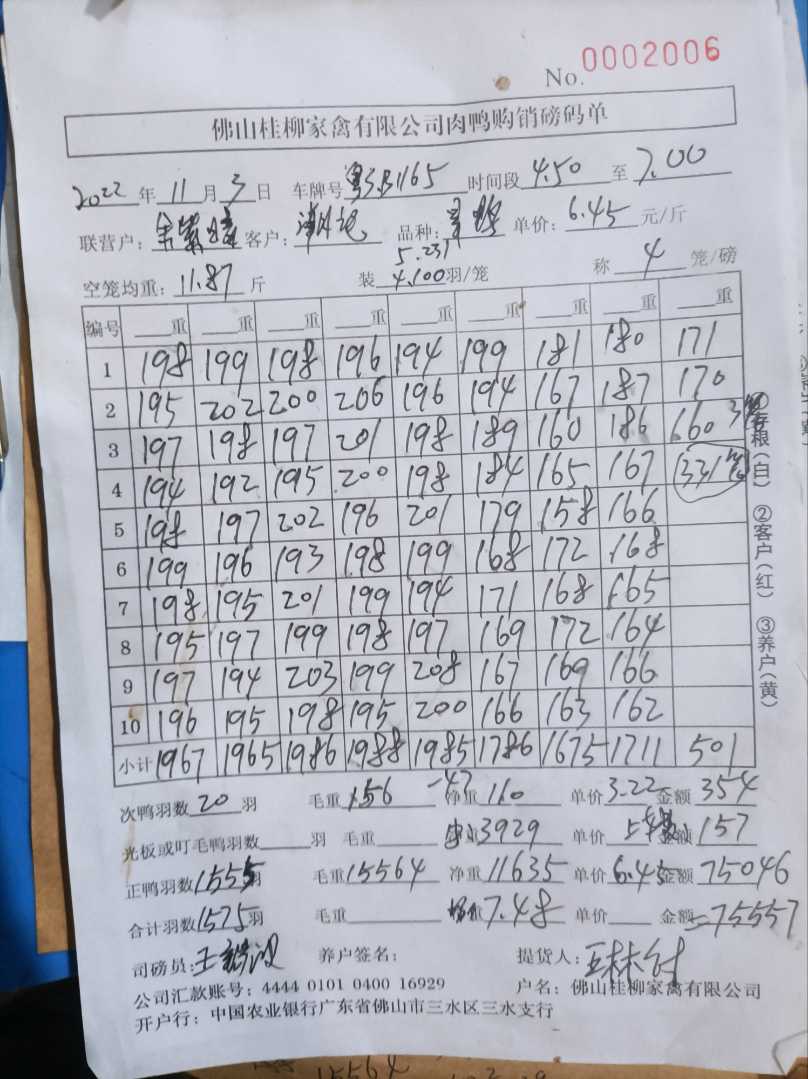 No. 0002006
佛山桂柳家禽有限公司肉鸭购销磅码单
2022 年 11 月 3 日 车牌号 粤 B1165 时间段 4.50 至 7.00
联营户： 客户： 记 品种： 单价：6.45 元/斤
5.231
空笼均重：11.87 斤 装 4.100 羽/笼 称 4 笼/磅
编号 重 重 重 重 重 重 重 重 重
1 198 199 198 196 194 199 181 180 171
2 195 202 200 206 196 194 167 187 170
3 197 198 197 201 198 189 160 186 160 3
4 194 192 195 200 198 184 165 167 331
5 198 197 202 196 201 179 158 166
6 199 196 193 198 199 168 172 168
7 198 195 201 199 194 171 168 165
8 195 197 199 198 197 169 172 164
9 197 194 203 199 208 167 169 166
10 196 195 198 195 200 166 163 162
小计 1967 1965 1986 1988 1985 1786 1675 1711 501
①存根（白） ②客户（红） ③养户（黄）
次鸭羽数 20 羽 毛重 156 -47 净重 110 单价 3.22 金额 354
光板或叮毛鸭羽数 羽 毛重 3929 单价 157
正鸭羽数 1555 羽 毛重 15564 净重 11635 单价 6.45 金额 75046
合计羽数 1575 羽 毛重 7.48 单价 金额 =75557
司磅员：王 养户签名： 提货人：
公司汇款账号：4444 0101 0400 16929 户名：佛山桂柳家禽有限公司
开户行：中国农业银行广东省佛山市三水区三水支行
15564